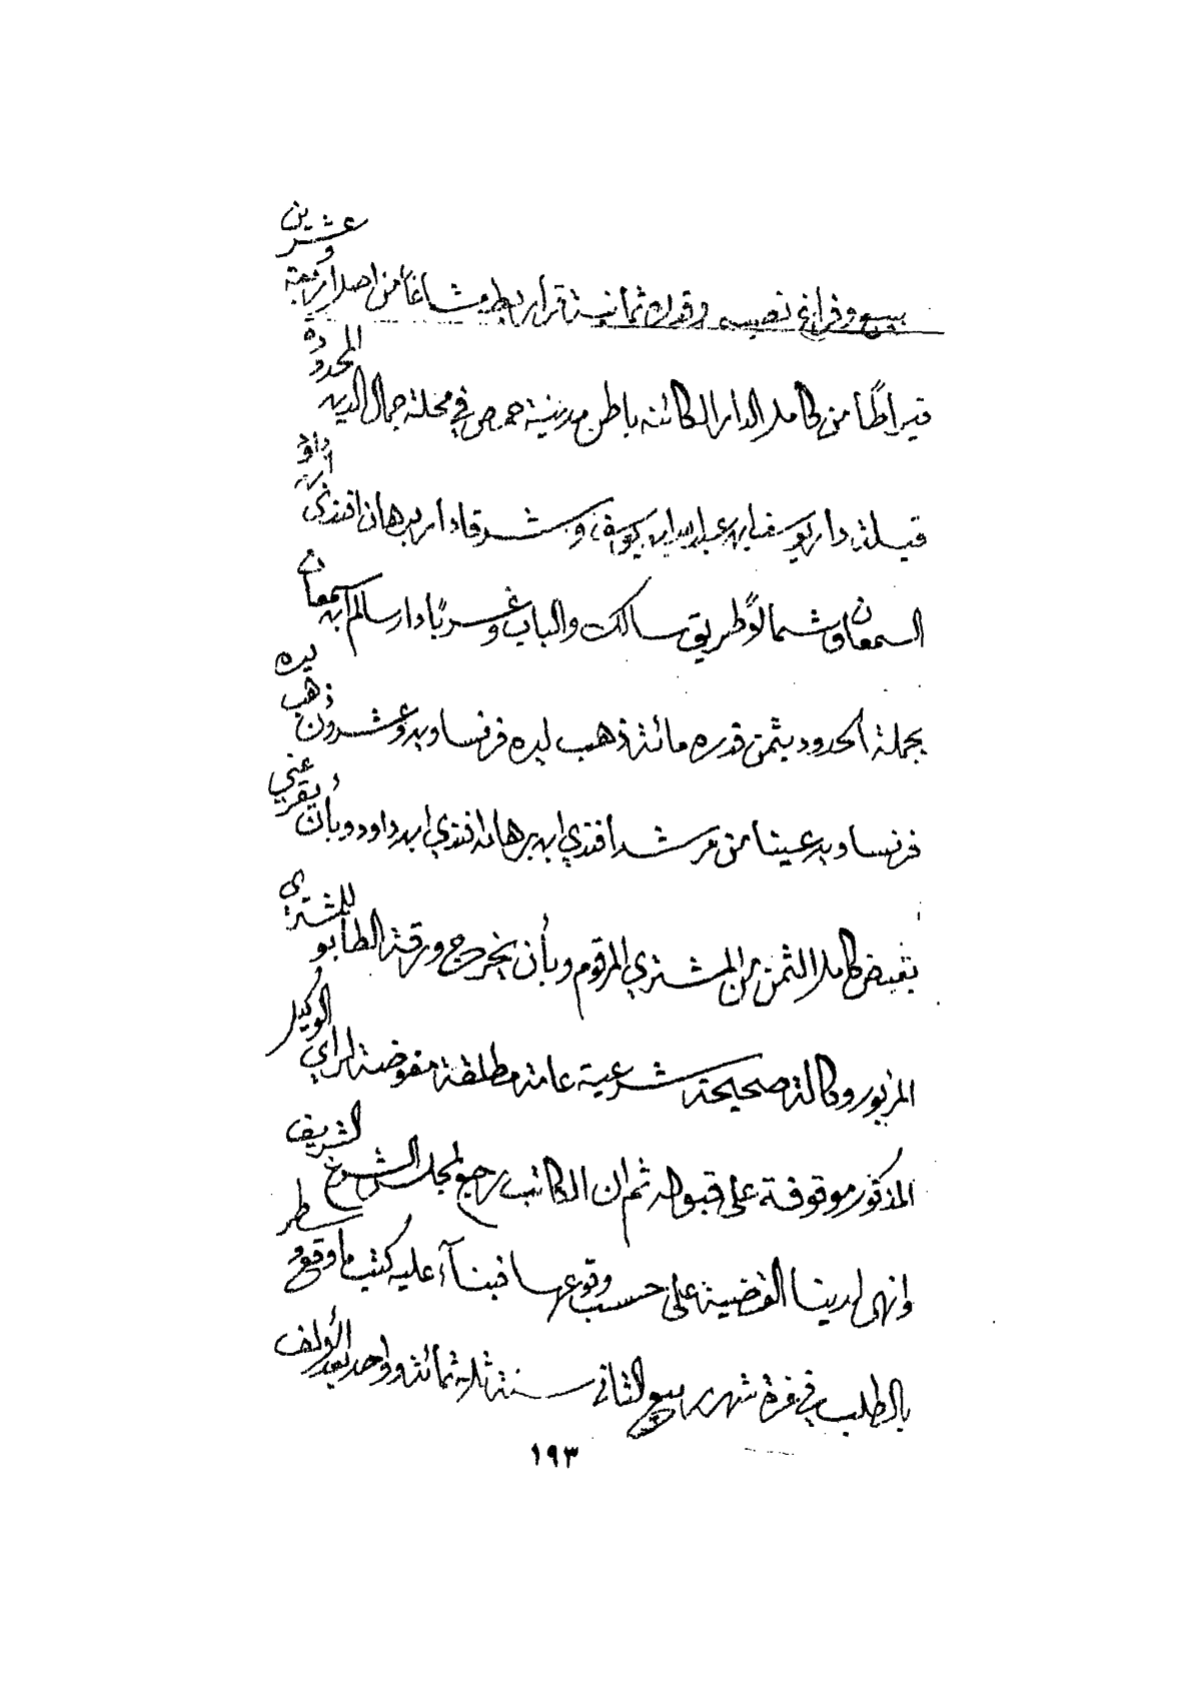 ببيع وفراغ نصيبه وقدره ثمانية قراريط مشاعًا من اصل اربعة وعشرين
قيراطًا من كامل الدار الكائنة باطن مدينة حمص في محلة جمال الدين المحدودة
قبلة دار يوسف ابن عبدالله ابن يوسف وشرقا دار برهان افندي ابن داود
السمعان وشمالاً طريق سالك والباب وغربًا دار سالم ابن سمعان
بجملة الحدود بثمن قدره مائة ذهب ليره فرنساويه وعشرون ذهب ليره
فرنساويه عينا من مرشد افندي ابن برهان افندي ابن داود وبأن يقر عني
بقبض كامل الثمن من المشتري المرقوم وبأن يخرج ورقة الطابو للمشتري
المزبور وكالة صحيحة شرعية عامة مطلقة مفوضة لراي الوكيل
المذكور موقوفة على قبوله ثم ان الكاتب رجع لمجلس الشرع الشريف
وانهى لدينا القضية على حسب وقوعها فبناءً عليه كتب ما وقع وسطر
بالطلب في غرة شهر ربيع الثاني سنة ثلاثمائة وواحد بعد الألف
١٩٣